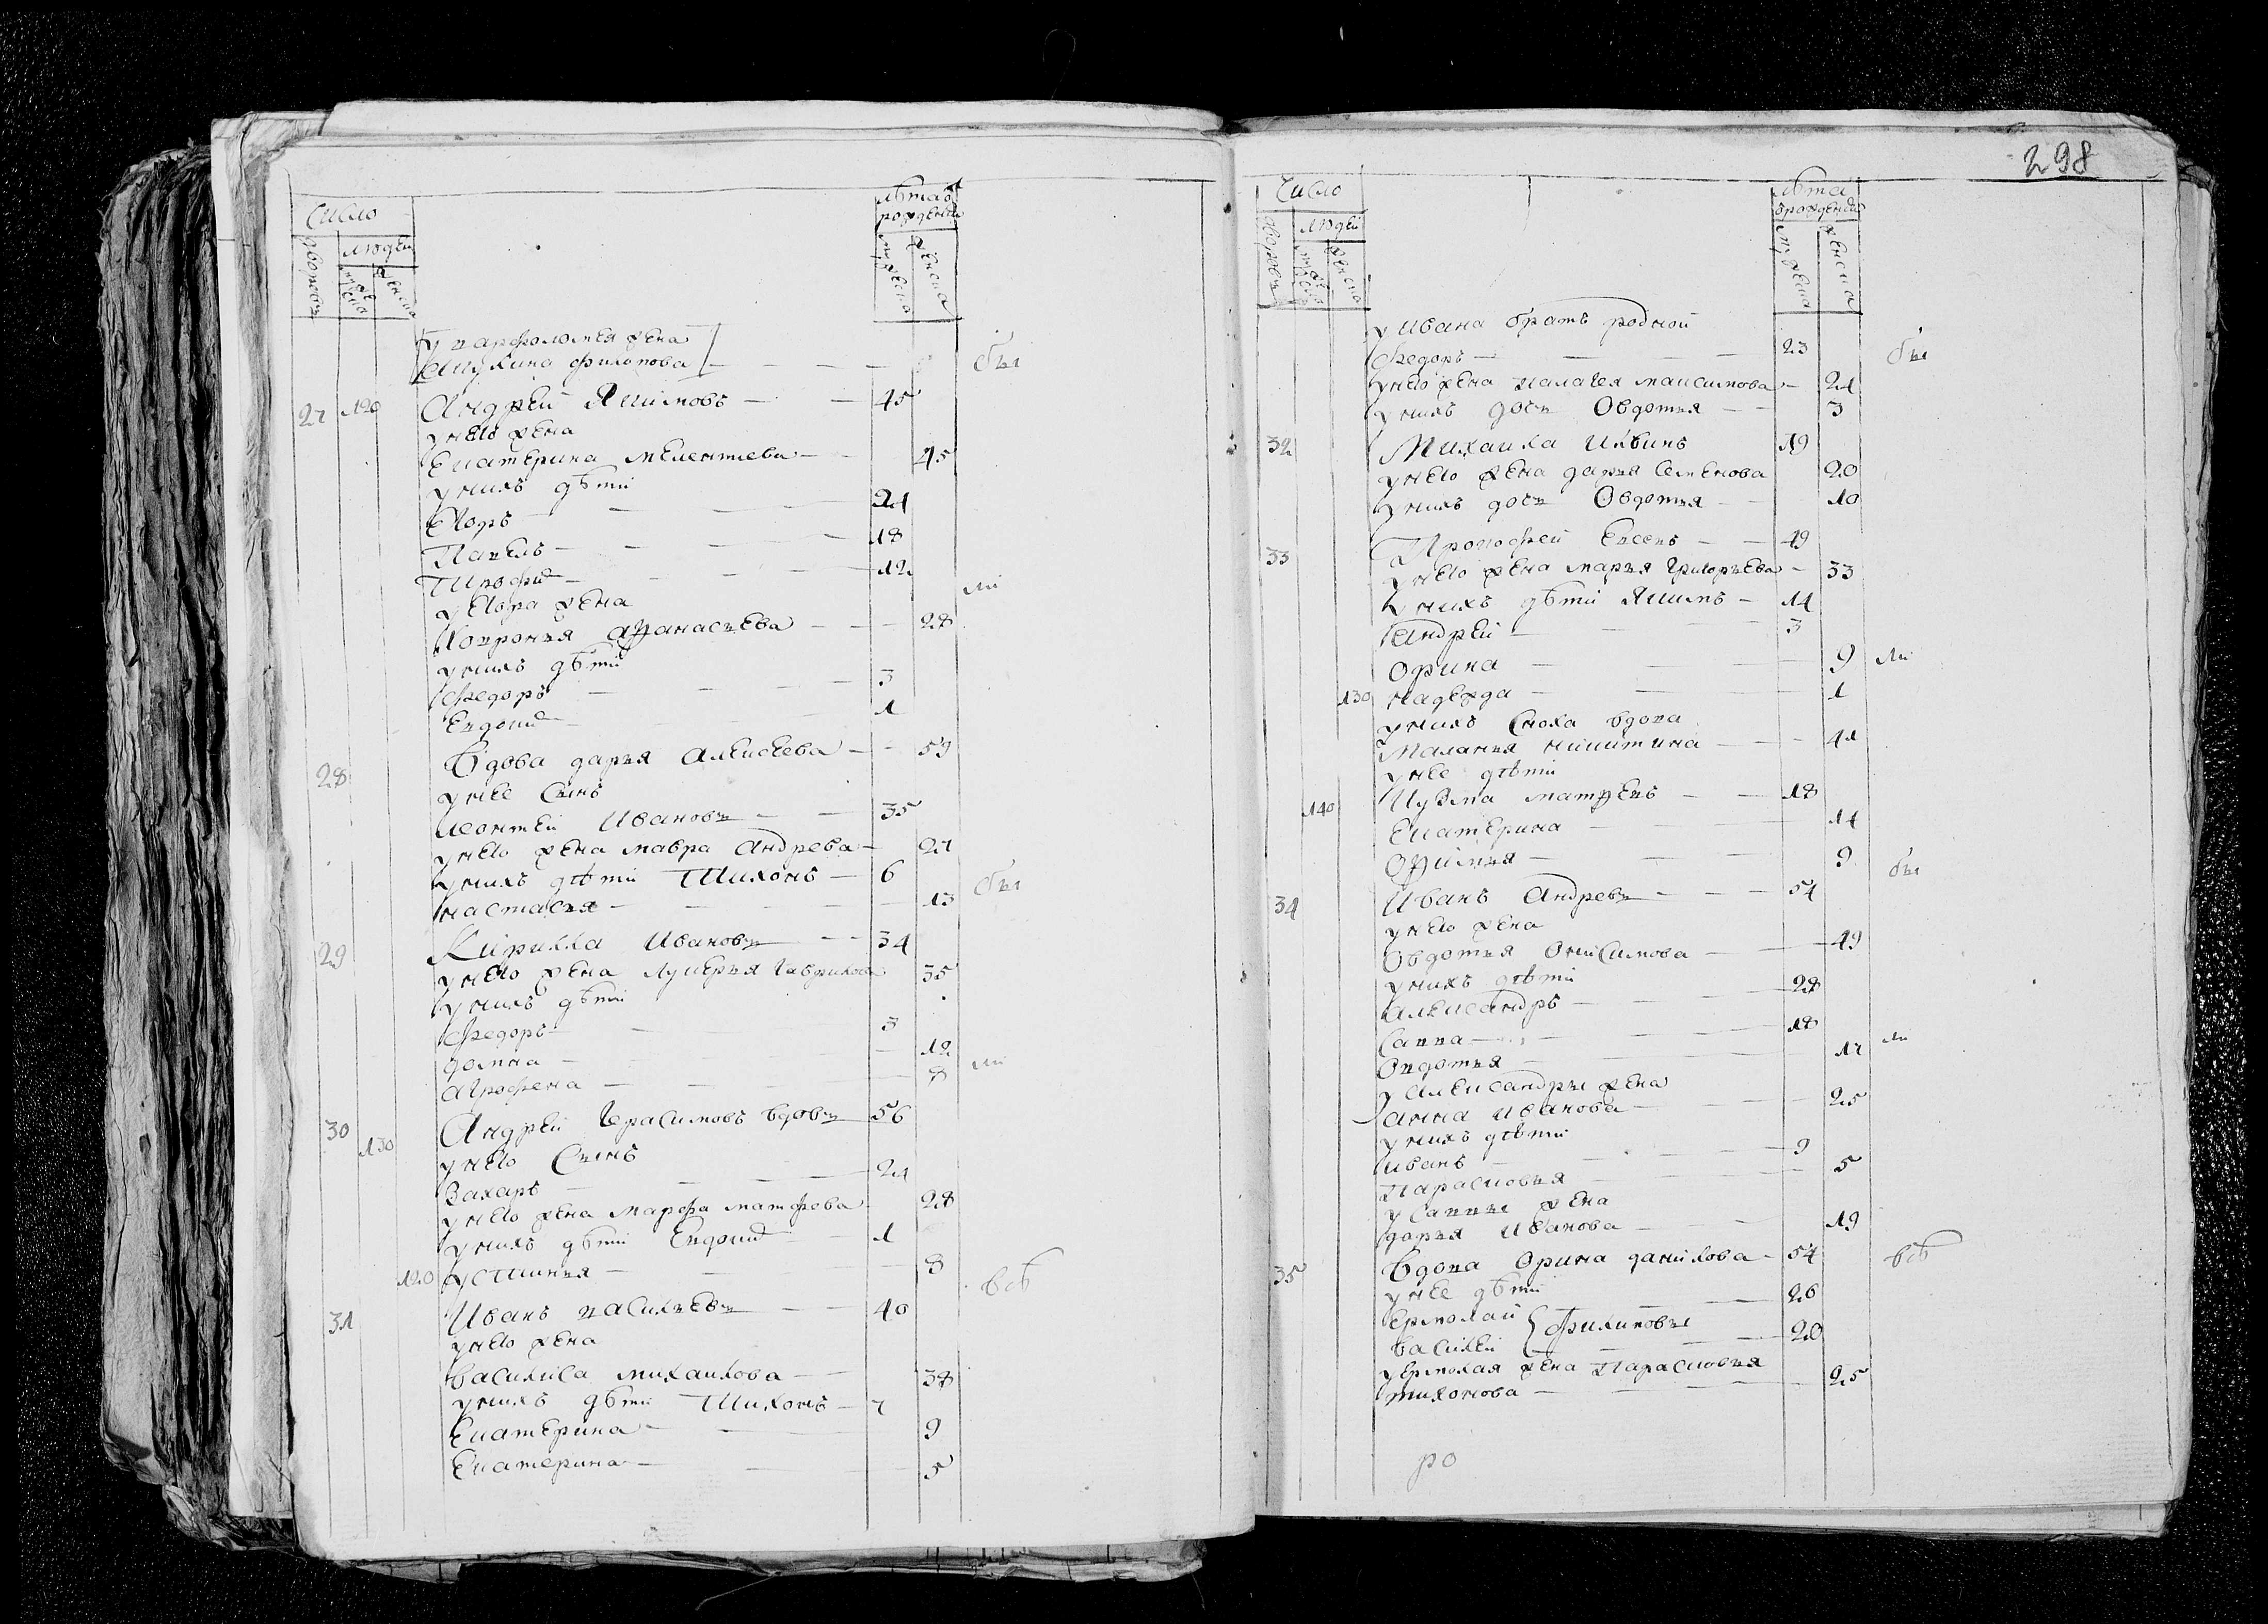 число
дворовъ
людей
мужеска
женска
лѣта отъ рожденія
мужеска
женска
у варфоломея жена
акулина филипова — — — —
был
27 120 Андрей Якимовъ — — 45
у него жена
Екатерина мелентиева — 45
у нихъ дѣти
Егоръ — — — 21
Павелъ — — — 18
Трофи — — — 12
ли
у егора жена
ховронья афанасьева — — 28
у нихъ дѣти
федоръ — — — 3
Евдоки — 1
28 Вдова дарья алексеева — 59
у нее сынъ
леонтей Ивановъ — — 35
у него жена мавра андрева — 27
у нихъ дѣти Тихонъ — 6
настасья — — — — 13
был
29 Кирилла Ивановъ — — 34
у него жена лукерья гаврилова 35
у нихъ дѣти
федоръ — — 3
домна — — 12
агрофена — — — 8
ли
30 130 Андрей герасимовъ вдовъ 56
у него сынъ
Захаръ — — — 21
у него жена марфа матфева 28
у нихъ дѣти Евдоки — 1
120 устинья — — — 8
всѣ
31 Иванъ васильевъ — — 40
у него жена
василиса михайлова — 38
у нихъ дѣти Тихонъ — 7
Екатерина — — 9
Екатерина — — 5
298
число
дворовъ
людей
мужеска
женска
лѣта
отъ рожденія
мужеска
женска
у Ивана братъ родной
федоръ — — — 23
был
у него жена палагея максимова — 24
у нихъ дочь Овдотья — — 3
32 Михаила Ильинъ 19
у него жена дарья семенова 20
у нихъ дочь Овдотья — 10
33 Прокофей Евсевъ — — 49
у него жена марья григорьева — 33
у нихъ дѣти Якимъ — 14
андрей — — 3
орина — — — 9
ли
130 надежда — — — 1
у нихъ сноха вдова
маланья никитина — — — 41
у нее дѣти
140 Кузма матфевъ — — 18
Екатерина — — — 14
офимья — — — 9
был
34 Иванъ андревъ — — — 54
у него жена
овдотья онисимова — — 49
у нихъ дѣти
александръ — — — 28
савва — — — 18
овдотья — — — 17
ли
у александры жена
анна иванова — — — 25
у нихъ дѣти
иванъ — — — 9
парасковья — — — 5
у саввы жена
дарья иванова — — — 19
35 Вдова орина данилова — 54
всѣ
у нее дѣти
ермолай } филиповы — 26
василей — — 20
у ермолая жена парасковья
тихонова — — — 25
ро